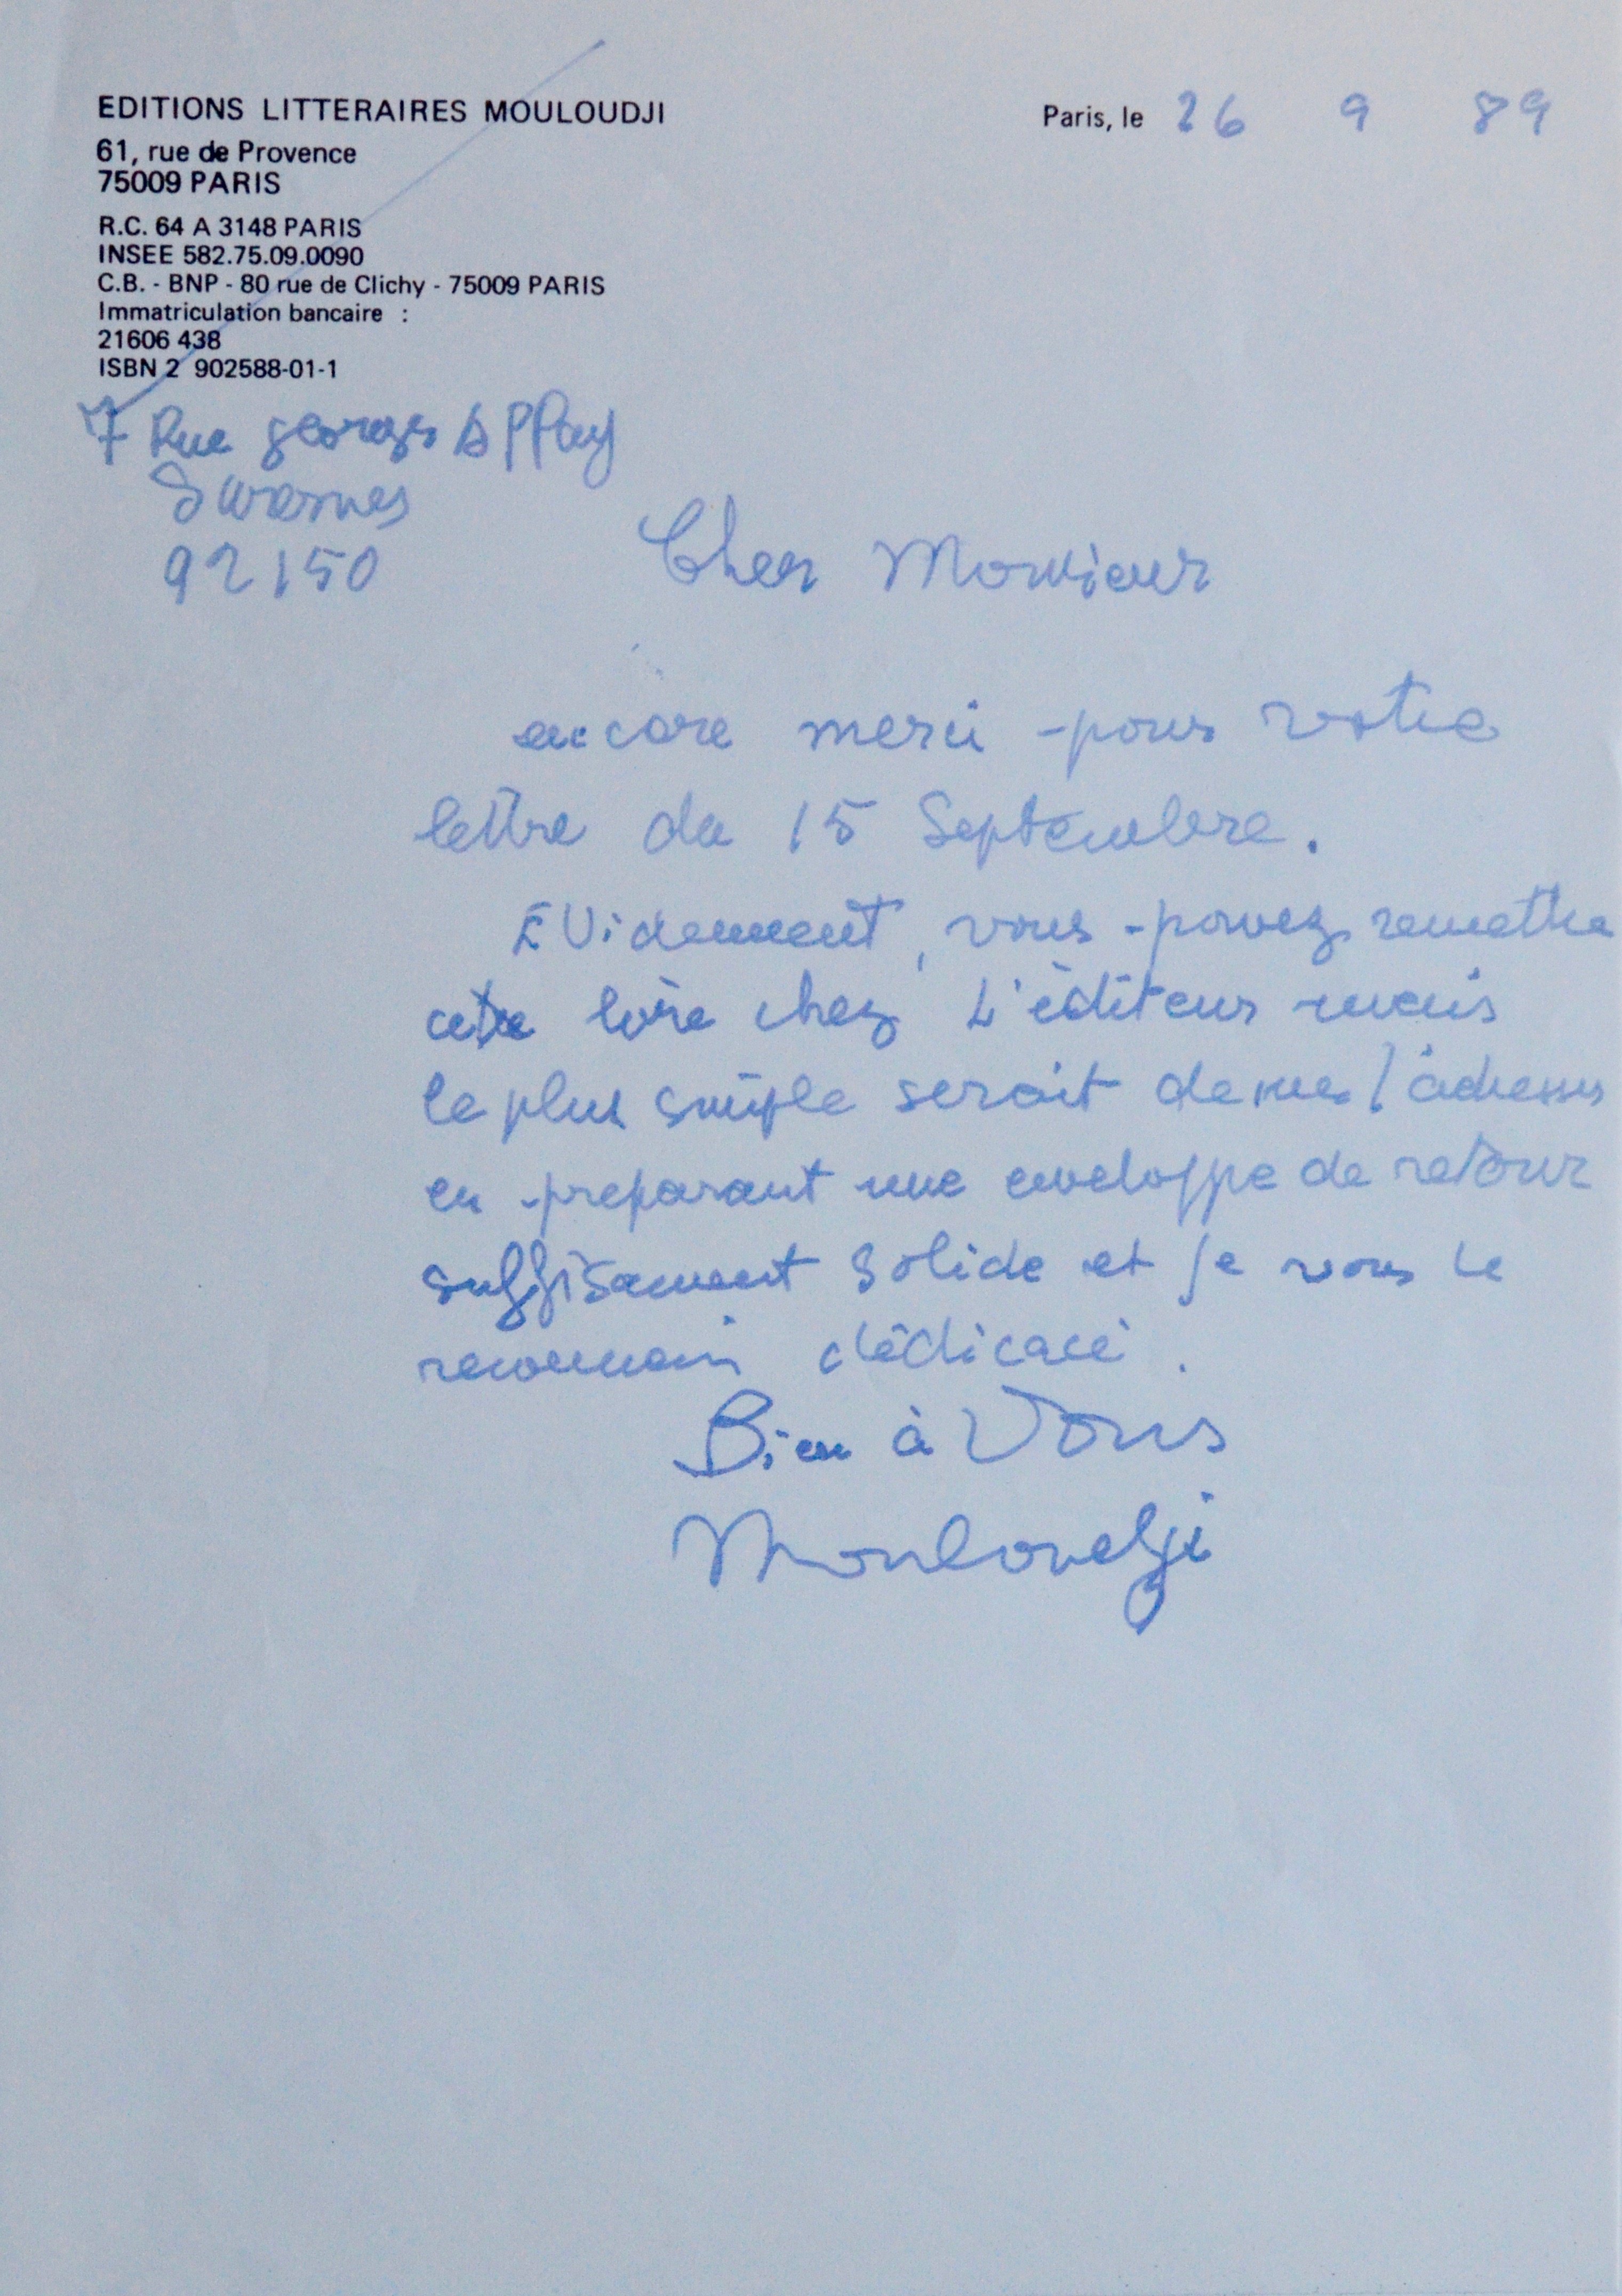 EDITIONS LITTERAIRES MOULOUDJI
61, rue de Provence
75009 PARIS
R.C. 64 A 3148 PARIS
INSEE 582.75.09.0090
C.B. - BNP - 80 rue de Clichy - 75009 PARIS
Immatriculation bancaire :
21606 438
ISBN 2 902588-01-1
Paris, le 26 9 89
7 Rue georges Appay
Suresnes
92150
Cher Monsieur
encore merci pour votre
lettre du 15 Septembre.
Evidemment, vous pouvez remettre
livre chez L'éditeur mais
le plus simple serait de me l'adresser
en preparant une enveloppe de retour
suffisament solide et je vous le
dédicacé.
Bien à Vous
Mouloudji